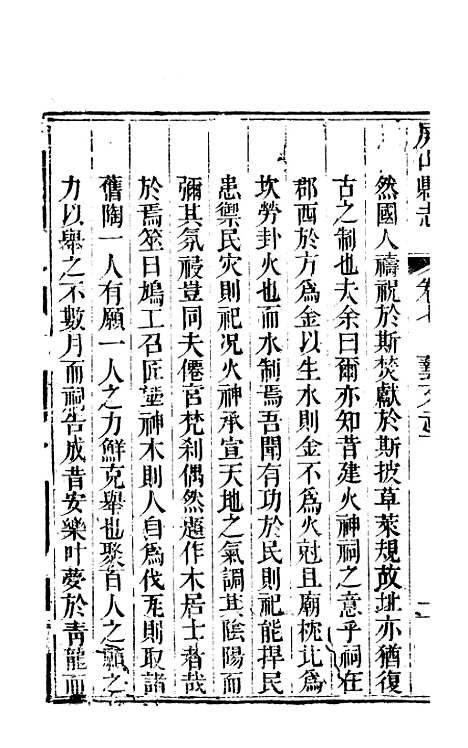 屏山縣志 卷七 藝文志
然國人禱祝於斯焚獻於斯披草萊規故址亦猶復
古之制也夫余曰爾亦知昔建火神祠之意乎祠在
郡西於方爲金以生水則金不爲火尅且廟枕北爲
坎勞卦火也而水制焉吾聞有功於民則祀能捍民
患禦民灾則祀况火神承宣天地之氣調其陰陽而
彌其氛祲豈同夫僊宮梵刹偶然題作木居士者哉
於焉筮日鳩工召匠蓮神木則人自爲伐瓦則取諸
舊陶一人有願一人之力鮮克舉也聚百人之願之
力以舉之不數月而祀告成昔安樂叶夢於靑龍而